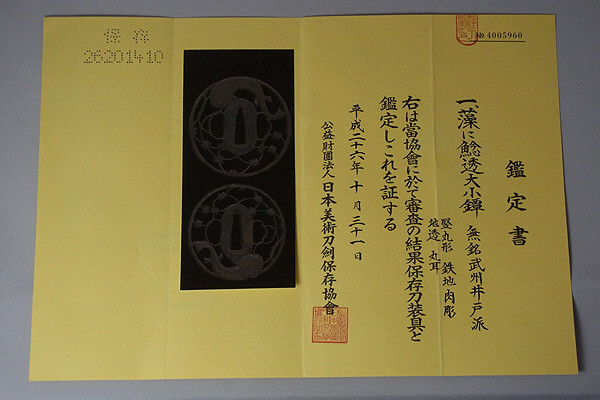 № 4005960
鑑定書
一、藻に鯰透大小鐔 無銘 武州井戸派
竪丸形 鉄地 肉彫
地透 丸耳
右は當協會に於て審査の結果保存刀装具と
鑑定しこれを証する
平成二十六年 十月 三十一日
公益財團法人 日本美術刀劍保存協會
保存
26201410